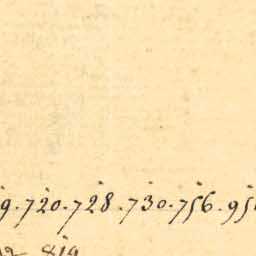 9.720.728.730.756.95
819